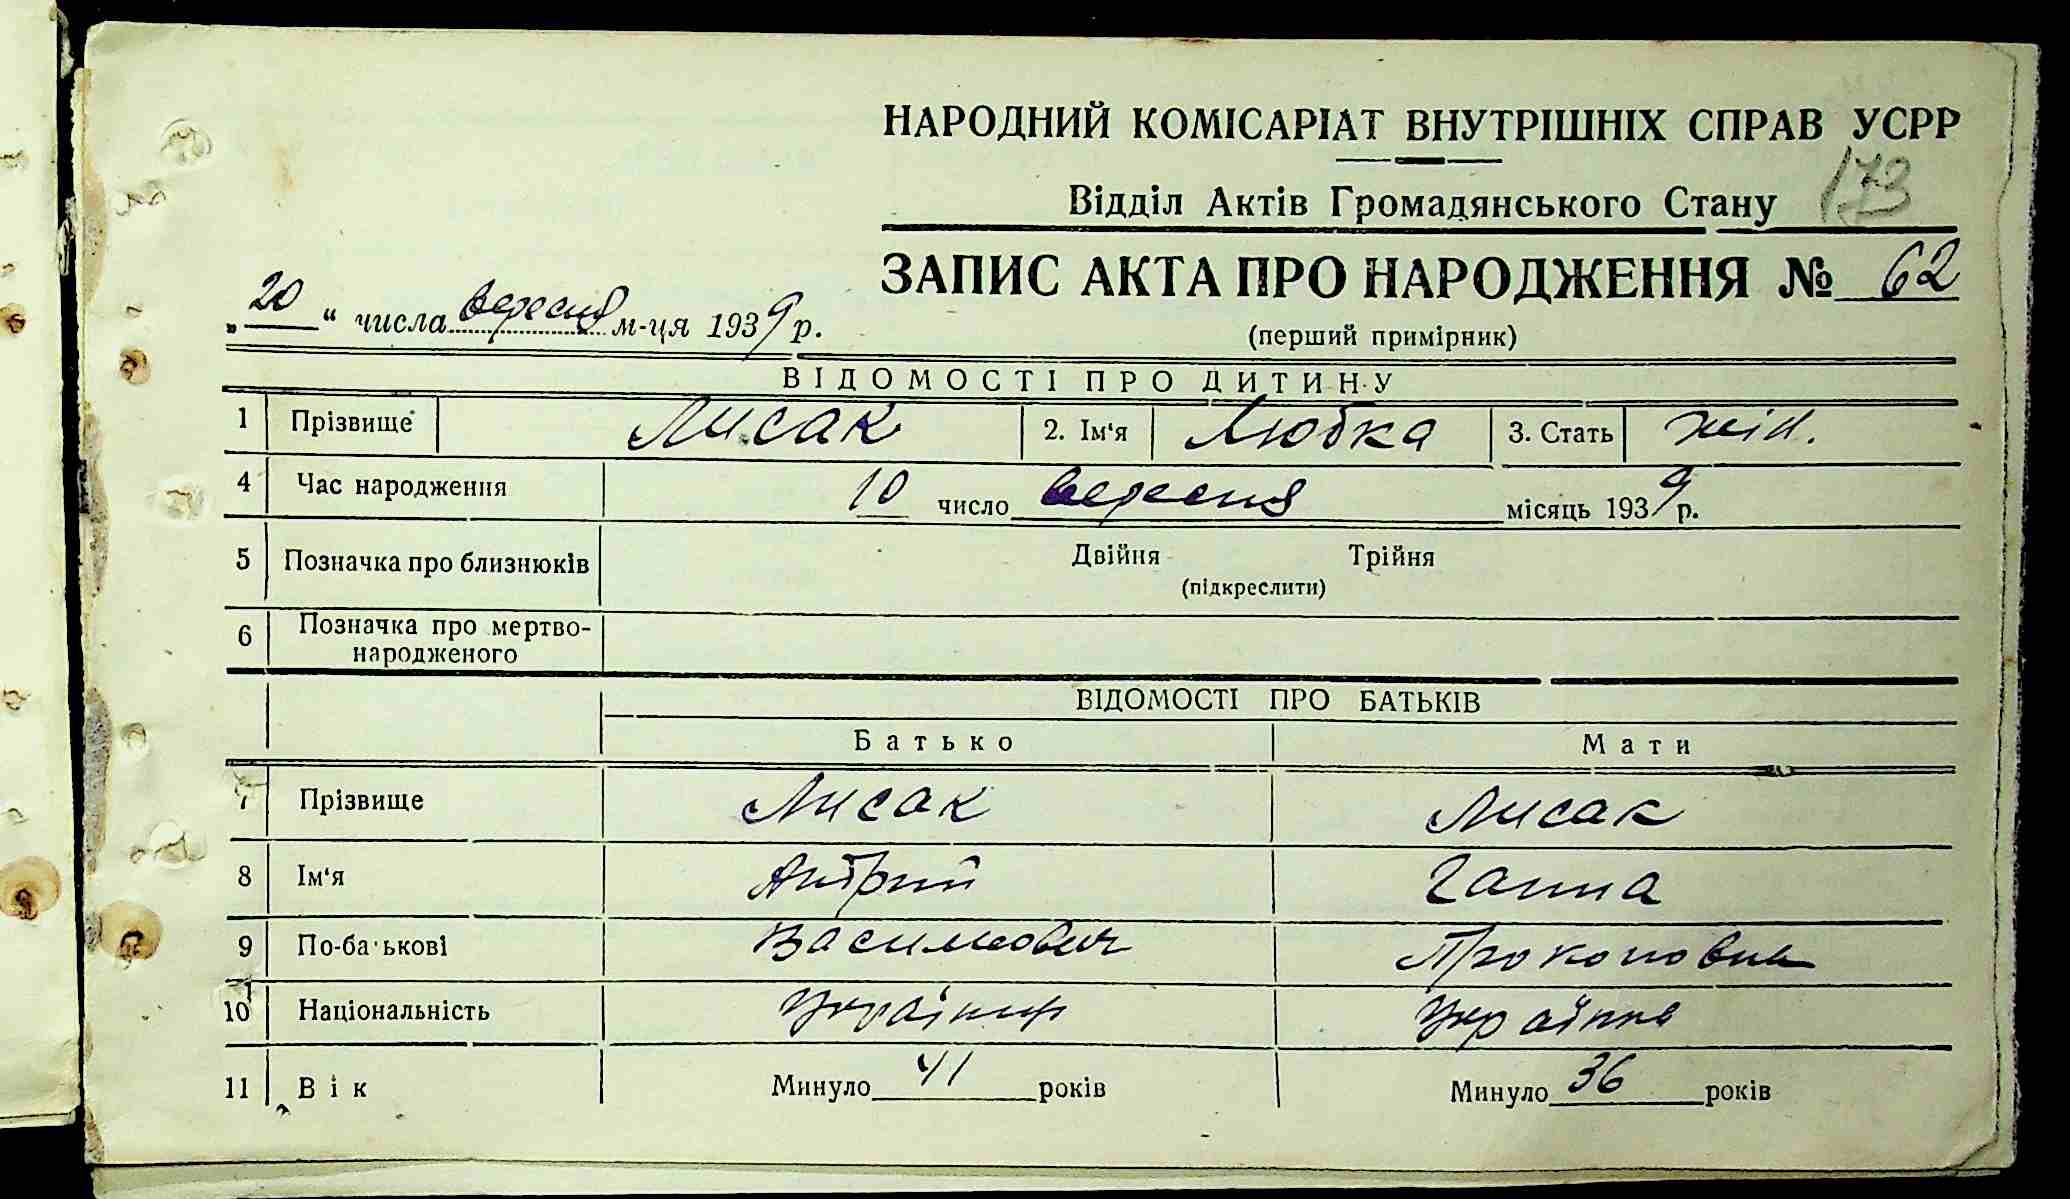 НАРОДНИЙ КОМІСАРІАТ ВНУТРІШНІХ СПРАВ УСРР
173
Відділ Актів Громадянського Стану
ЗАПИС АКТА ПРО НАРОДЖЕННЯ № 62
„20“ числа вересня м-ця 1939 р.
(перший примірник)
ВІДОМОСТІ ПРО ДИТИНУ
1 Прізвище Лисак 2. Ім‘я Любка 3. Стать жін.
4 Час народження 10 число вересня місяць 1939 р.
5 Позначка про близнюків Двійня Трійня
(підкреслити)
6 Позначка про мертво-
народженого
ВІДОМОСТІ ПРО БАТЬКІВ
Батько Мати
7 Прізвище Лисак Лисак
8 Ім‘я Ганна
9 По-ба ькові Василиович
10 Національність Українець Українка
11 Вік Минуло 41 років Минуло 36 років